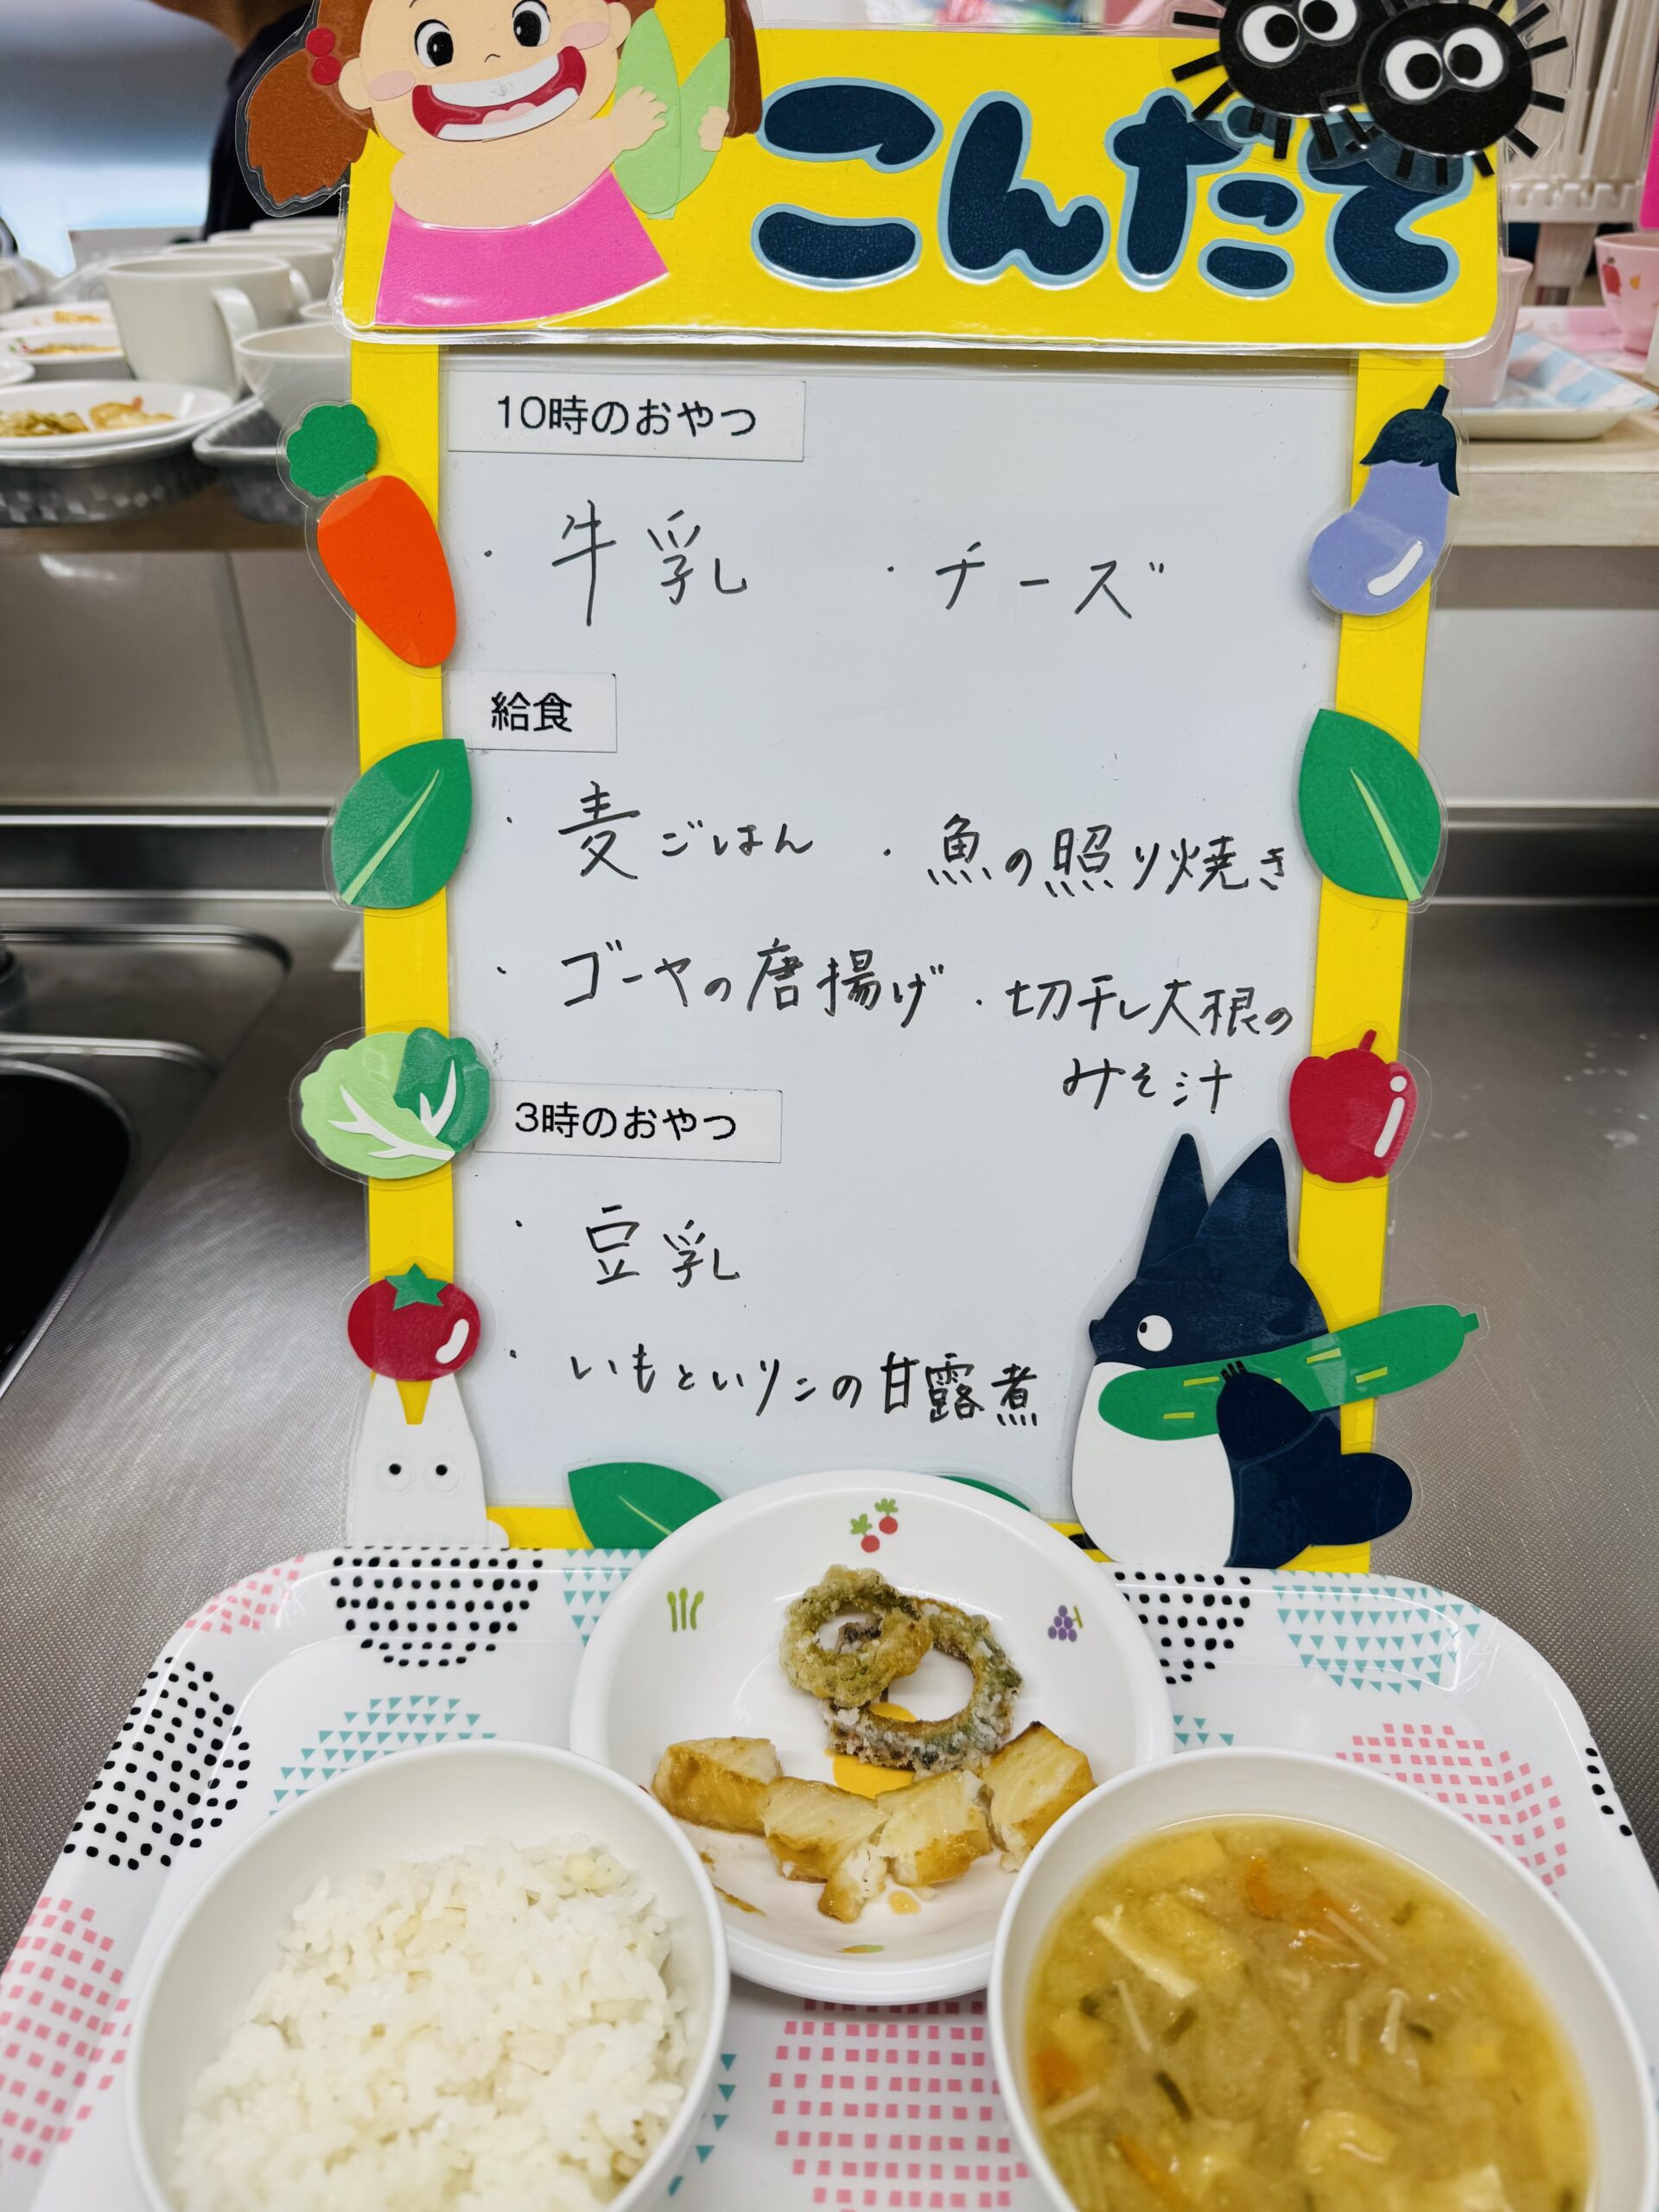 こんだて
10時のおやつ
・牛乳 ・チーズ
給食
・麦ごはん ・魚の照り焼き
・ゴーヤの唐揚げ ・切干し大根の
みそ汁
3時のおやつ
・豆乳
・いもといリンの甘露煮